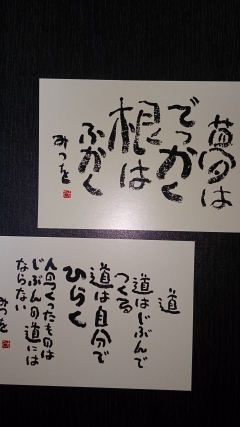 夢は
でっかく
根は
ふかく
みつを
道
道はじぶんで
つくる
道は自分で
ひらく
人のつくったものは
じぶんの道には
ならない
みつを